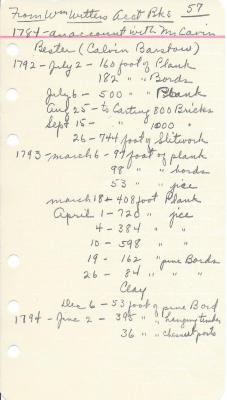 From Wm Witters Acct Bks 57
1784 - an account with Mr Carvin
Bester (Calvin Barstow)
1792 - July 2 - 160 foot of Plank
182 " " Bords
July 6 - 500 " " Plank
Aug 25 - to Carting 800 Bricks
Sept 15 - " " 1000 "
26 - 744 foot of Slitwork
1793 - march 6 - 97 foot of plank
98 " " bords
53 " " jice
march 18 & 408 foot Plank
April 1 - 720 " jice
4 - 384 " "
10 - 598 " "
19 - 162 " pine Bords
26 - 84 " " "
Clay
Dec 6 - 53 foot of pine Bord
1794 - June 2 - 395 " " hanging timber
36 " " chesnut posts